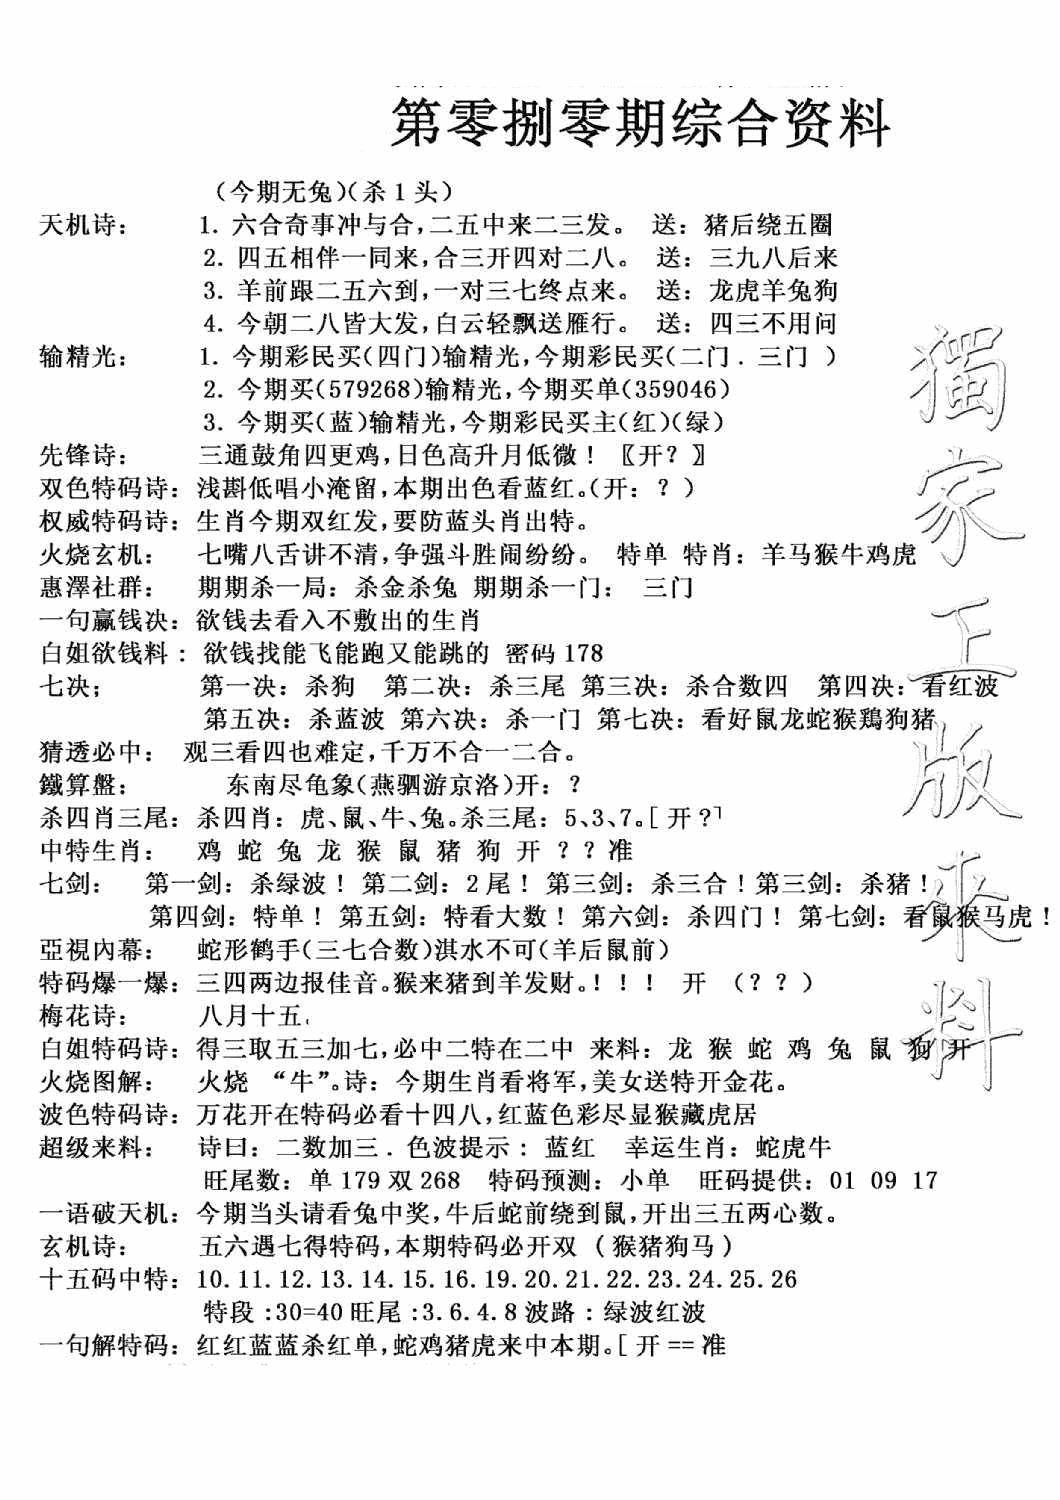 第零捌零期综合资料
（今期无兔）（杀1头）
天机诗： 1. 六合奇事冲与合，二五中来二三发。 送：猪后绕五圈
2. 四五相伴一同来，合三开四对二八。 送：三九八后来
3. 羊前跟二五六到，一对三七终点来。 送：龙虎羊兔狗
4. 今朝二八皆大发，白云轻飘送雁行。 送：四三不用问
输精光： 1. 今期彩民买（四门）输精光，今期彩民买（二门．三门 ）
2. 今期买（579268）输精光，今期买单（359046）
3. 今期买（蓝）输精光，今期彩民买主（红）（绿）
先锋诗： 三通鼓角四更鸡，日色高升月低微！〖开？〗
双色特码诗：浅斟低唱小淹留，本期出色看蓝红。（开：？）
权威特码诗：生肖今期双红发，要防蓝头肖出特。
火烧玄机： 七嘴八舌讲不清，争强斗胜闹纷纷。 特单 特肖：羊马猴牛鸡虎
惠澤社群： 期期杀一局：杀金杀兔 期期杀一门： 三门
一句赢钱决：欲钱去看入不敷出的生肖
白姐欲钱料： 欲钱找能飞能跑又能跳的 密码178
七决； 第一决：杀狗 第二决：杀三尾 第三决：杀合数四 第四决：看红波
第五决：杀蓝波 第六决：杀一门 第七决：看好鼠龙蛇猴鶏狗猪
猜透必中： 观三看四也难定，千万不合一二合。
鐵算盤： 东南尽龟象（燕驷游京洛）开：？
杀四肖三尾：杀四肖：虎、鼠、牛、兔。杀三尾：5、3、7。[ 开？]
中特生肖： 鸡 蛇 兔 龙 猴 鼠 猪 狗 开 ？？准
七剑： 第一剑：杀绿波！第二剑：2尾！第三剑：杀三合！第三剑：杀猪！
第四剑：特单！第五剑：特看大数！第六剑：杀四门！第七剑：看鼠猴马虎！
亞視內幕： 蛇形鹤手（三七合数）淇水不可（羊后鼠前）
特码爆一爆：三四两边报佳音。猴来猪到羊发财。！！！ 开 （？？）
梅花诗： 八月十五
白姐特码诗：得三取五三加七，必中二特在二中 来料：龙 猴 蛇 鸡 兔 鼠 狗 开
火烧图解： 火烧 “牛”。诗：今期生肖看将军，美女送特开金花。
波色特码诗：万花开在特码必看十四八，红蓝色彩尽显猴藏虎居
超级来料： 诗曰：二数加三．色波提示：蓝红 幸运生肖：蛇虎牛
旺尾数：单179双268 特码预测：小单 旺码提供：01 09 17
一语破天机：今期当头请看兔中奖，牛后蛇前绕到鼠，开出三五两心数。
玄机诗： 五六遇七得特码，本期特码必开双 （猴猪狗马）
十五码中特：10.11.12.13.14.15.16.19.20.21.22.23.24.25.26
特段:30=40旺尾:3.6.4.8波路：绿波红波
一句解特码：红红蓝蓝杀红单，蛇鸡猪虎来中本期。[ 开==准
獨家正版來料